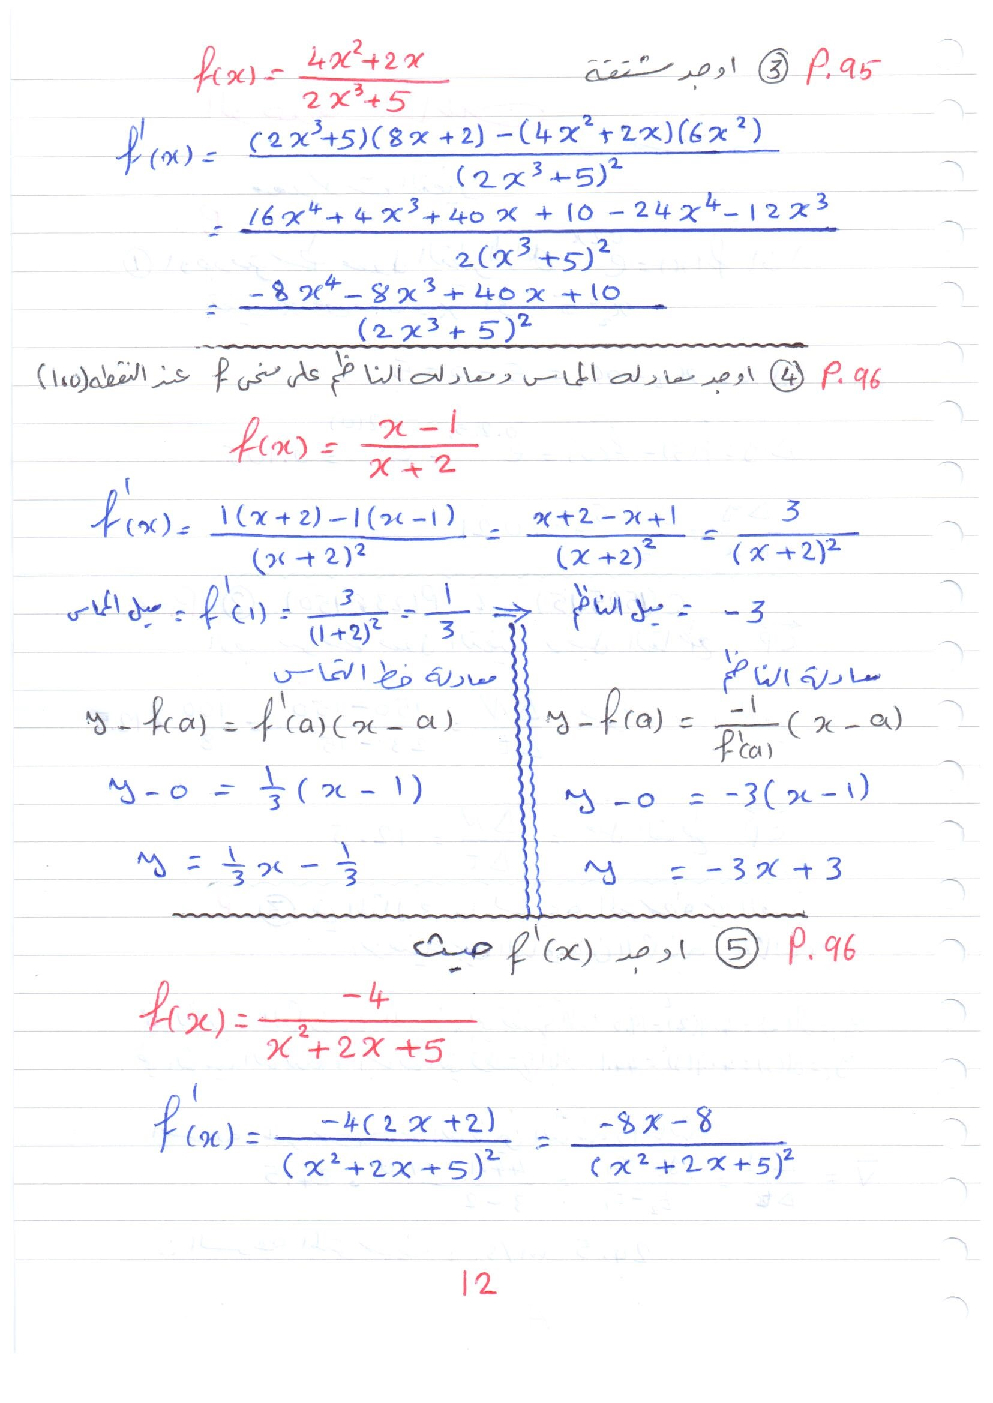 P.95 ③ اوجد مشتقة f(x) = (4x²+2x)/(2x³+5)
f'(x) = ((2x³+5)(8x+2) - (4x²+2x)(6x²))/(2x³+5)²
= (16x⁴+4x³+40x+10-24x⁴-12x³)/2(x³+5)²
= (-8x⁴-8x³+40x+10)/(2x³+5)²
P.96 ④ اوجد معادله المماس ومعادله الناظم على منحنى f عند النقطه (1,0)
f(x) = (x-1)/(x+2)
f'(x) = (1(x+2)-1(x-1))/(x+2)² = (x+2-x+1)/(x+2)² = 3/(x+2)²
ميل المماس = f'(1) = 3/(1+2)² = 1/3 ⇒ ميل الناظم = -3
معادلة خط التماس
y-f(a) = f'(a)(x-a)
y-0 = 1/3(x-1)
y = 1/3x - 1/3
معادلة الناظم
y-f(a) = -1/f'(a) (x-a)
y-0 = -3(x-1)
y = -3x+3
P.96 ⑤ اوجد f'(x) حيث
f(x) = -4/(x²+2x+5)
f'(x) = -4(2x+2)/(x²+2x+5)² = (-8x-8)/(x²+2x+5)²
12